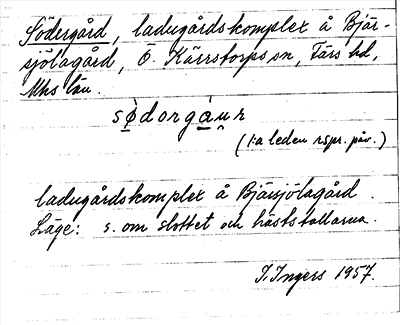 Södergård, ladugårdskomplex å Bjär-
sjölagård, Ö. Kärrstorps sn, Färs hd,
Mhs län.
sø̀dorgàu̯r
(1:a leden rspr. påv.)
ladugårdskomplex å Bjärsjölagård.
Läge: s. om slottet och häststallarna.
I. Ingers 1957.